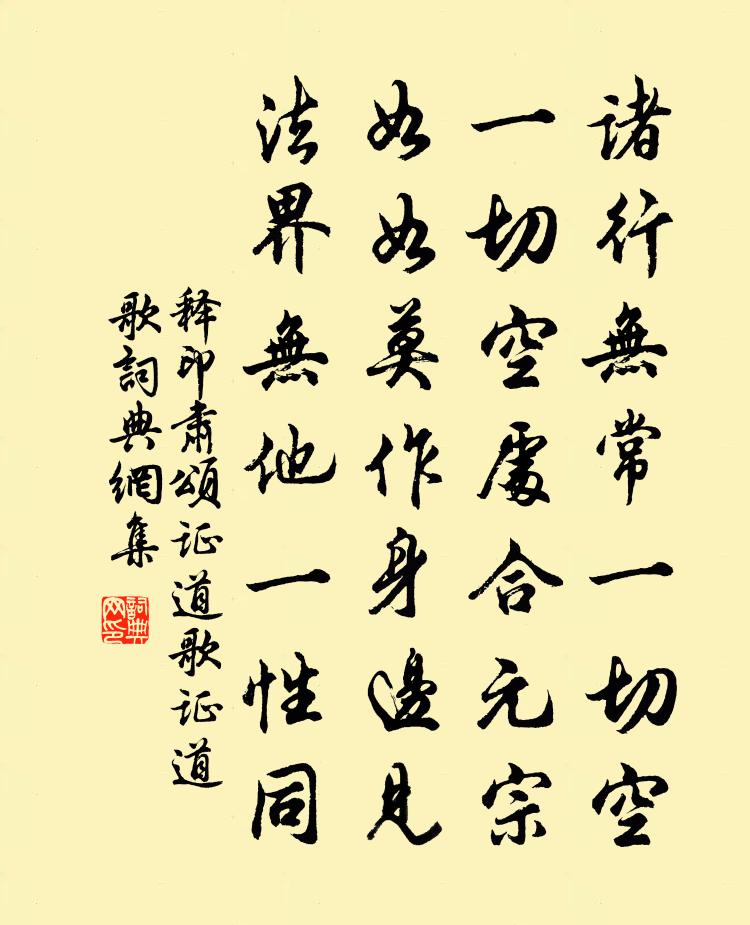 諸行無常一切空
一切空處合元宗
如如莫作身邊見
法界無他一性同
释印肅頌证道歌证道
歌詞典網集
詞典网印